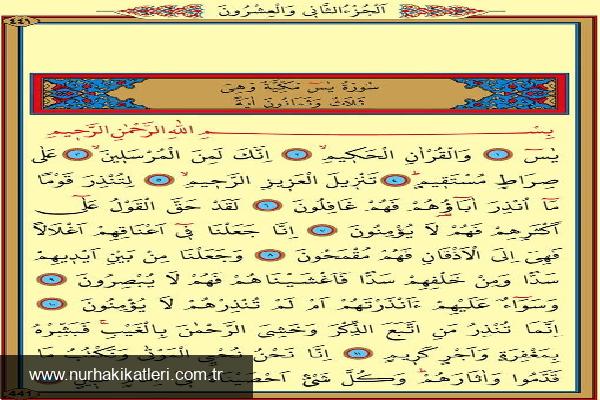 اَلْجُزْءُ الثَّانِي وَالْعِشْرُونَ
٤٤١
سُورَةُ يٰسٓ مَكِّيَّةٌ وَهِيَ
ثَلَاثٌ وَثَمَانُونَ اٰيَةً
بِسْمِ اللّٰهِ الرَّحْمٰنِ الرَّحِيمِ
يٰسٓ ١ وَالْقُرْاٰنِ الْحَكِيمِ ٢ اِنَّكَ لَمِنَ الْمُرْسَلِينَ ٣ عَلٰى
صِرَاطٍ مُسْتَقِيمٍ ٤ تَنْزِيلَ الْعَزِيزِ الرَّحِيمِ ٥ لِتُنْذِرَ قَوْمًا
مَٓا اُنْذِرَ اٰبَٓاؤُهُمْ فَهُمْ غَافِلُونَ ٦ لَقَدْ حَقَّ الْقَوْلُ عَلٰٓى
اَكْثَرِهِمْ فَهُمْ لَا يُؤْمِنُونَ ٧ اِنَّا جَعَلْنَا ف۪ٓي اَعْنَاقِهِمْ اَغْلَالًا
فَهِيَ اِلَى الْاَذْقَانِ فَهُمْ مُقْمَحُونَ ٨ وَجَعَلْنَا مِنْ بَيْنِ اَيْدِيهِمْ
سَدًّا وَمِنْ خَلْفِهِمْ سَدًّا فَاَغْشَيْنَاهُمْ فَهُمْ لَا يُبْصِرُونَ ٩
وَسَوَٓاءٌ عَلَيْهِمْ ءَاَنْذَرْتَهُمْ اَمْ لَمْ تُنْذِرْهُمْ لَا يُؤْمِنُونَ ١٠
اِنَّمَا تُنْذِرُ مَنِ اتَّبَعَ الذِّكْرَ وَخَشِيَ الرَّحْمٰنَ بِالْغَيْبِ فَبَشِّرْهُ
بِمَغْفِرَةٍ وَاَجْرٍ كَرِيمٍ ١١ اِنَّا نَحْنُ نُحْيِ الْمَوْتٰى وَنَكْتُبُ مَا
قَدَّمُوا وَاٰثَارَهُمْ وَكُلَّ شَيْءٍ اَحْصَيْنَاهُ
www.nurhakikatleri.com.tr